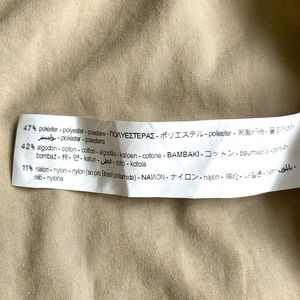 47% poliéster - polyester - poliestere - ΠΟΛΥΕΣΤΕΡΑΣ - ポリエステル - poliester -
- poliester - polyesteria
42% algodón - cotton - coton - algodão - katoen - cotone - BAMBAKI - コットン - baumwolle -
bombaž - 棉 - 면 - katun - قطن - coto - kotoia
11% nailon - nylon - nylon (so p/o Brasil poliamida) - ΝΑΪΛΟΝ - ナイロン - najlon - 锦纶 - 나일론 -
nilo - nylona